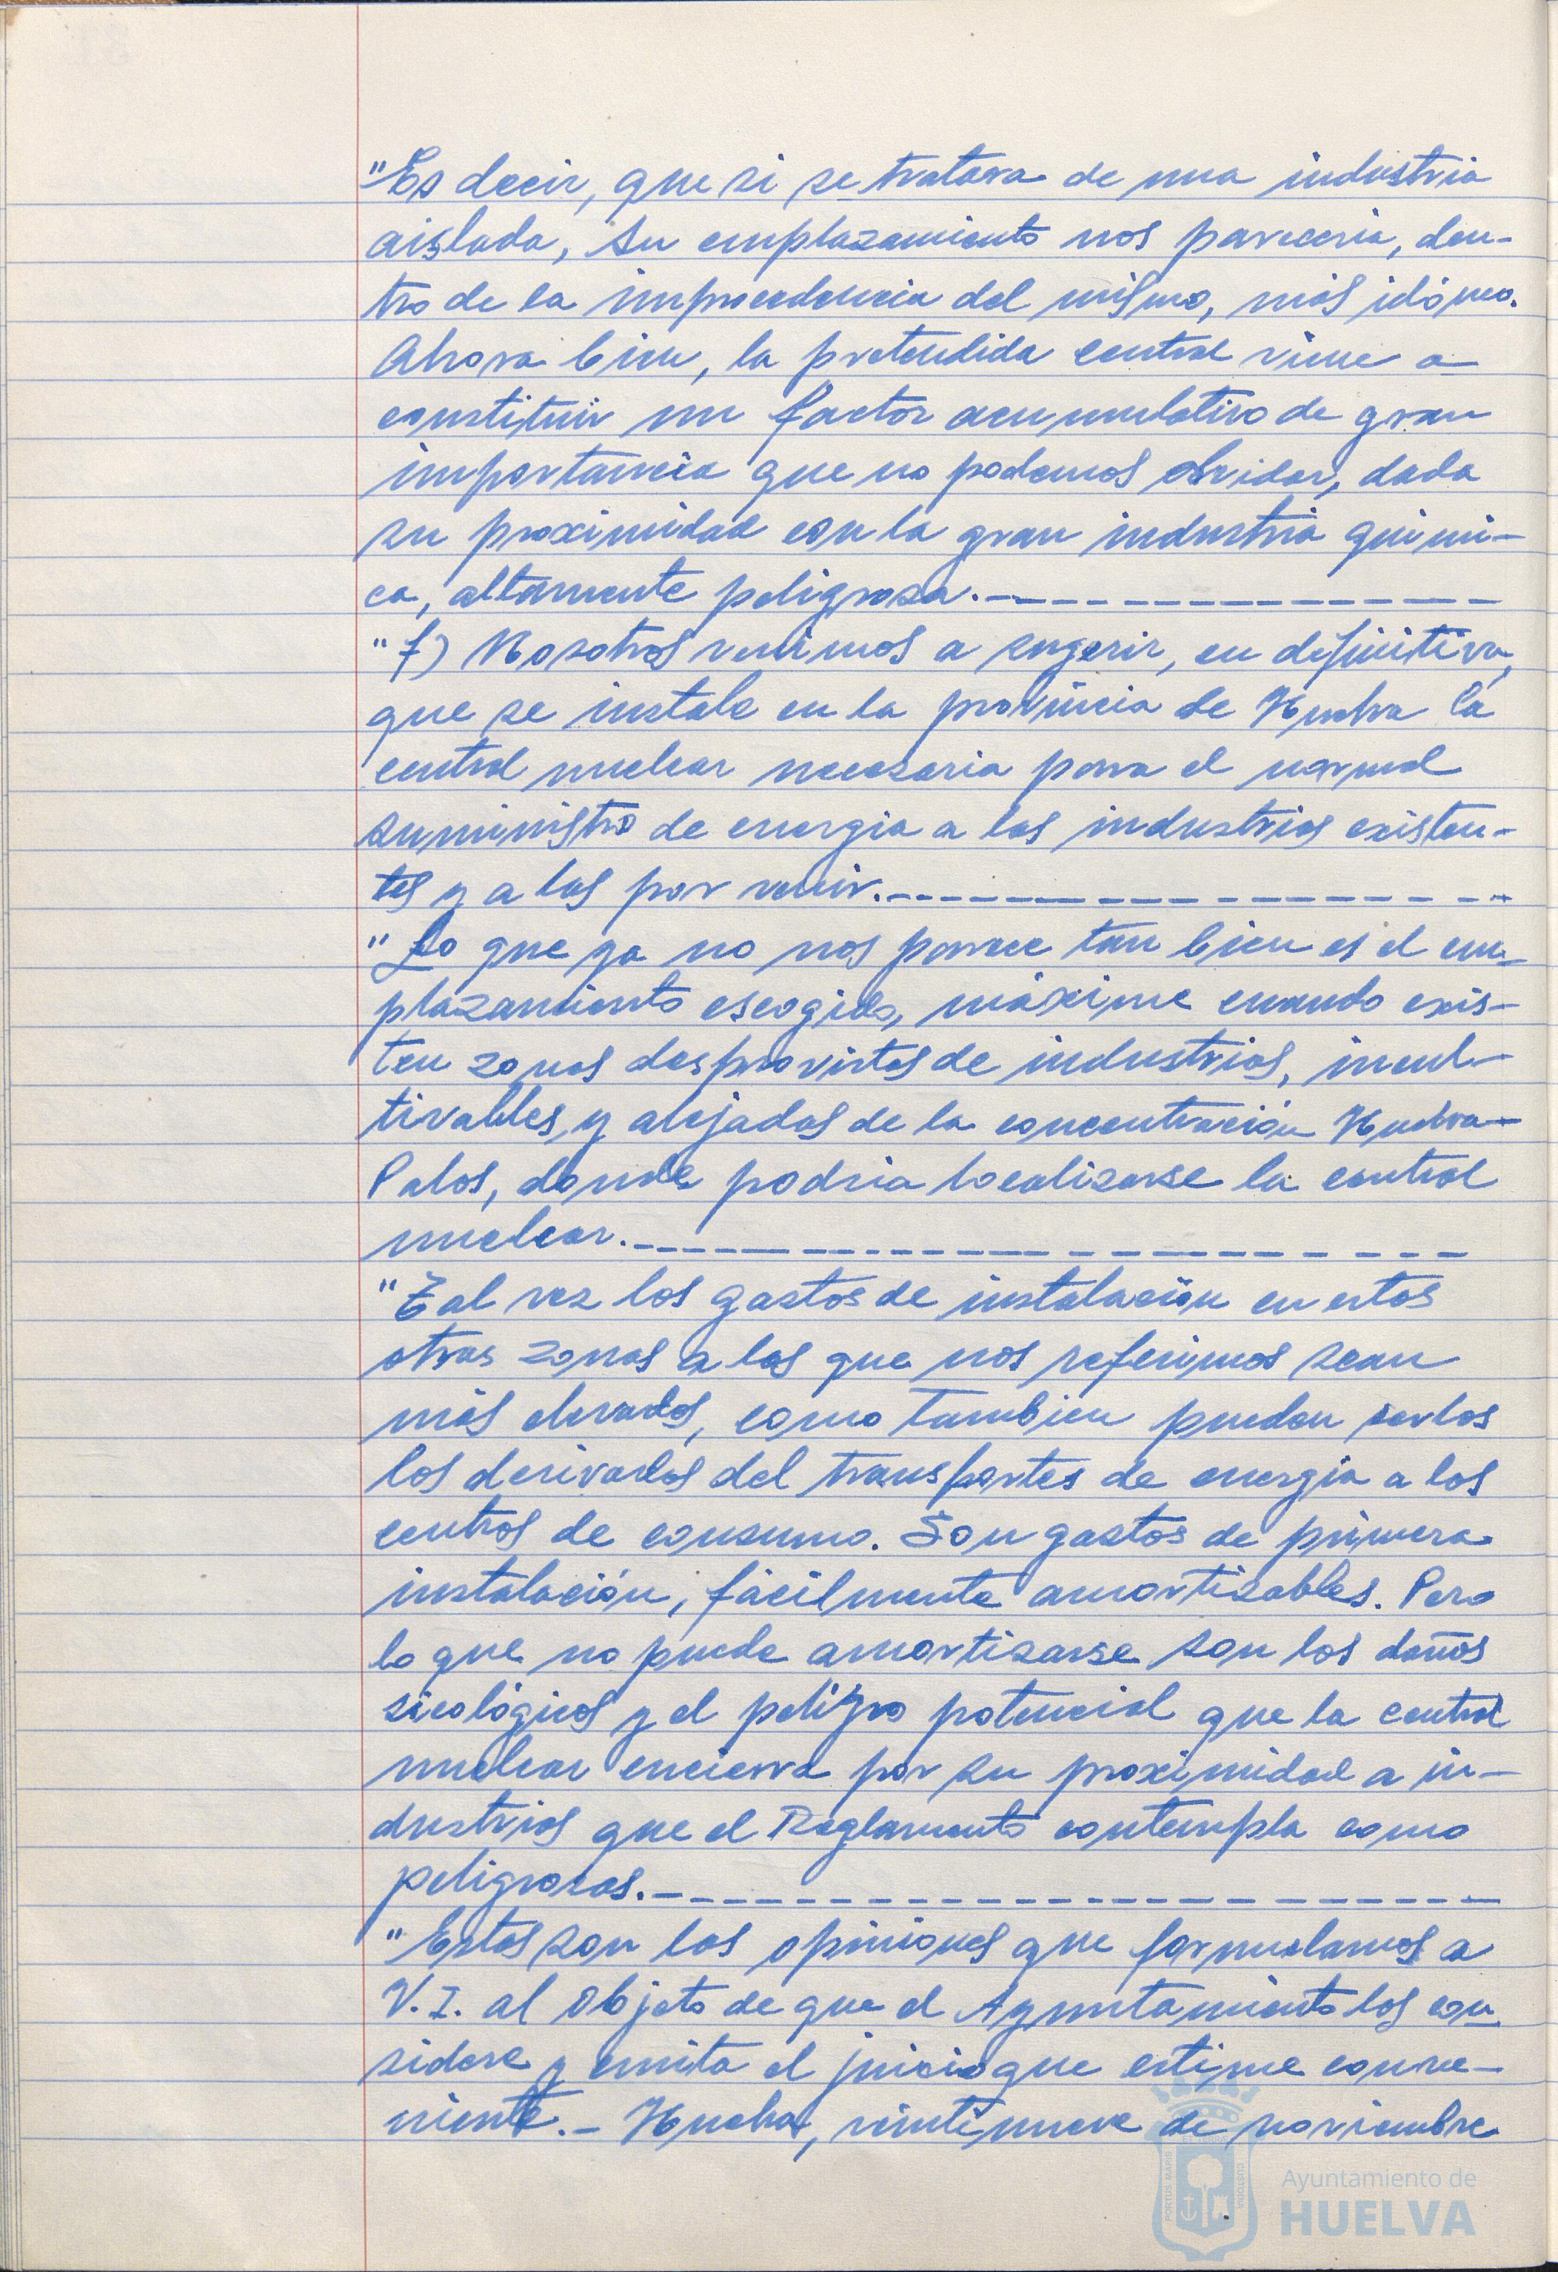 "Es decir, que si se tratara de una industria
aislada, su emplazamiento nos parecería, den-
tro de la improcedencia del mismo, más idóneo.
Ahora bien, la pretendida central viene a
constituir un factor acumulativo de gran
importancia que no podemos olvidar, dada
su proximidad con la gran industria quími-
ca, altamente peligrosa.-
"f) Nosotros venimos a sugerir, en definitiva,
que se instale en la provincia de Huelva la
central nuclear necesaria para el normal
suministro de energía a las industrias existen-
tes y a las por venir.-
"Lo que ya no nos parece tan bien es el em-
plazamiento escogido, máxime cuando exis-
ten zonas desprovistas de industrias, incul-
tivables, y alejadas de la concentración Huelva-
Palos, donde podría localizarse la central
nuclear.-
"Tal vez los gastos de instalación en estas
otras zonas a las que nos referimos sean
más elevados, como tambien pueden serlos
los derivados del transportes de energía a los
centros de consumo. Son gastos de primera
instalación, fácilmente amortizables. Pero
lo que no puede amortizarse son los daños
sicológicos y el peligro potencial que la central
nuclear encierra por su proximidad a in-
dustrias que el Reglamento contempla como
peligrosas.-
"Estas son las opiniones que formulamos a
V.I. al objeto de que el Ayuntamiento los con-
sidere y emita el juicio que estime conve-
niente.- Huelva, veintinueve de noviembre
PORTUS MARIS
CUSTODIA
Ayuntamiento de
HUELVA